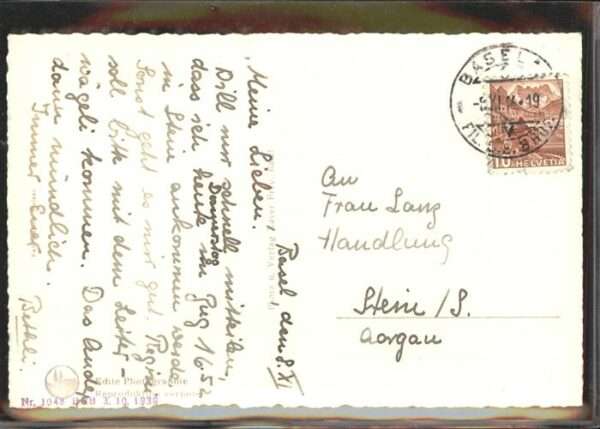 Basel den 8. XI
Meine Lieben.
Will nur schnell mitteilen,
dass ich heute Donnerstag im Zug 16.52
in Stein ankommen werde.
Sonst geht es mir gut. Regin
soll bitte mit dem Leiter-
wägeli kommen. Das Andere
dann mündlich.
Immer Euer
Bethli.
An
Frau Lang
Handlung
Stein/S.
Aargau
BASEL
10 HELVETIA
Echte Photographie
Reproduktion
Nr. 1048 BRB 3.10.1939